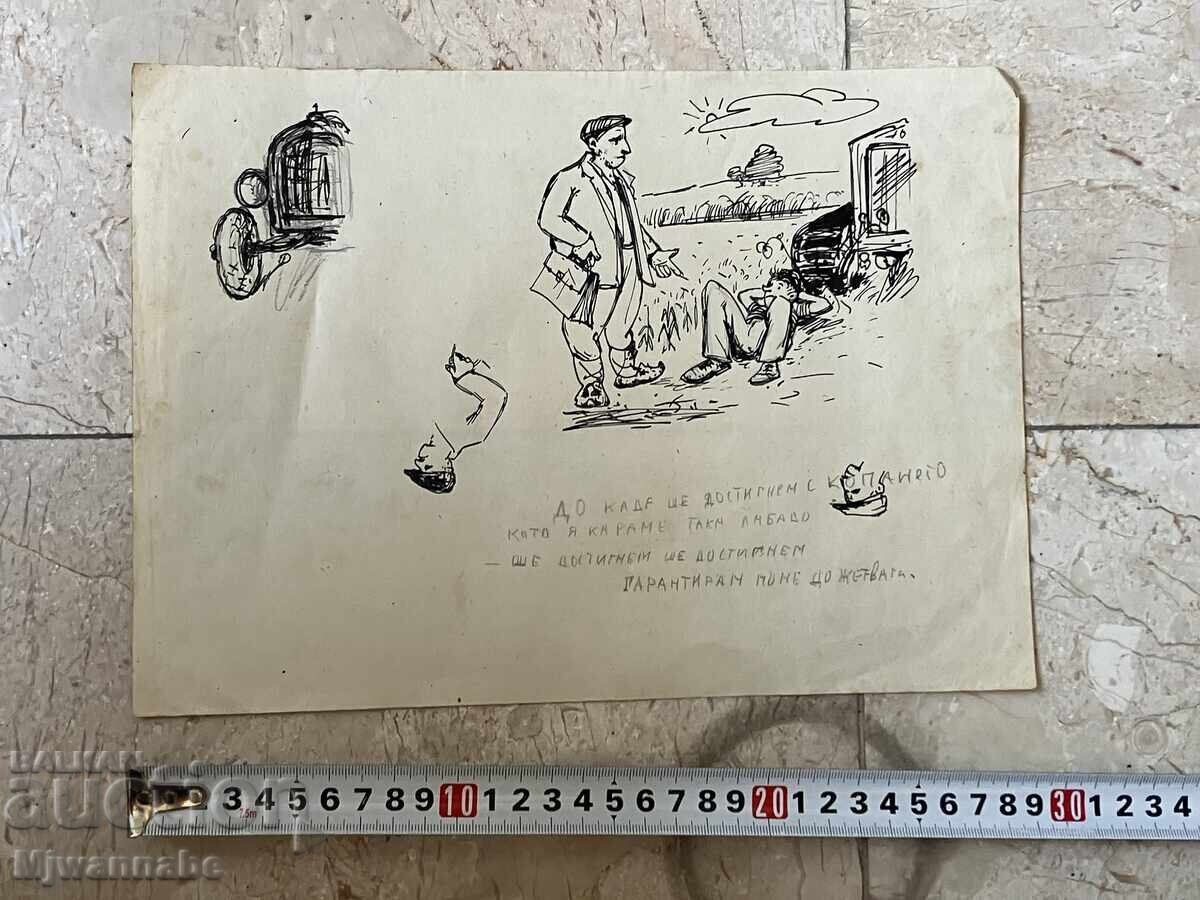 ДО КАДЕ ШЕ ДОСТИГНЕМ С КОПАНЕТО
КОТО Я КАРАМЕ ТАКА ЛАБАДО
– ШЕ ДОСТИГНЕМ ШЕ ДОСТИГНЕМ
ГАРАНТИРАМ ПОНЕ ДО ЖЕТВАТА.
2 3 4 5 6 7 8 9 10 1 2 3 4 5 6 7 8 9 20 1 2 3 4 5 6 7 8 9 30 1 2 3 4
7.5m
BALKAN
auction
Mjwannabe